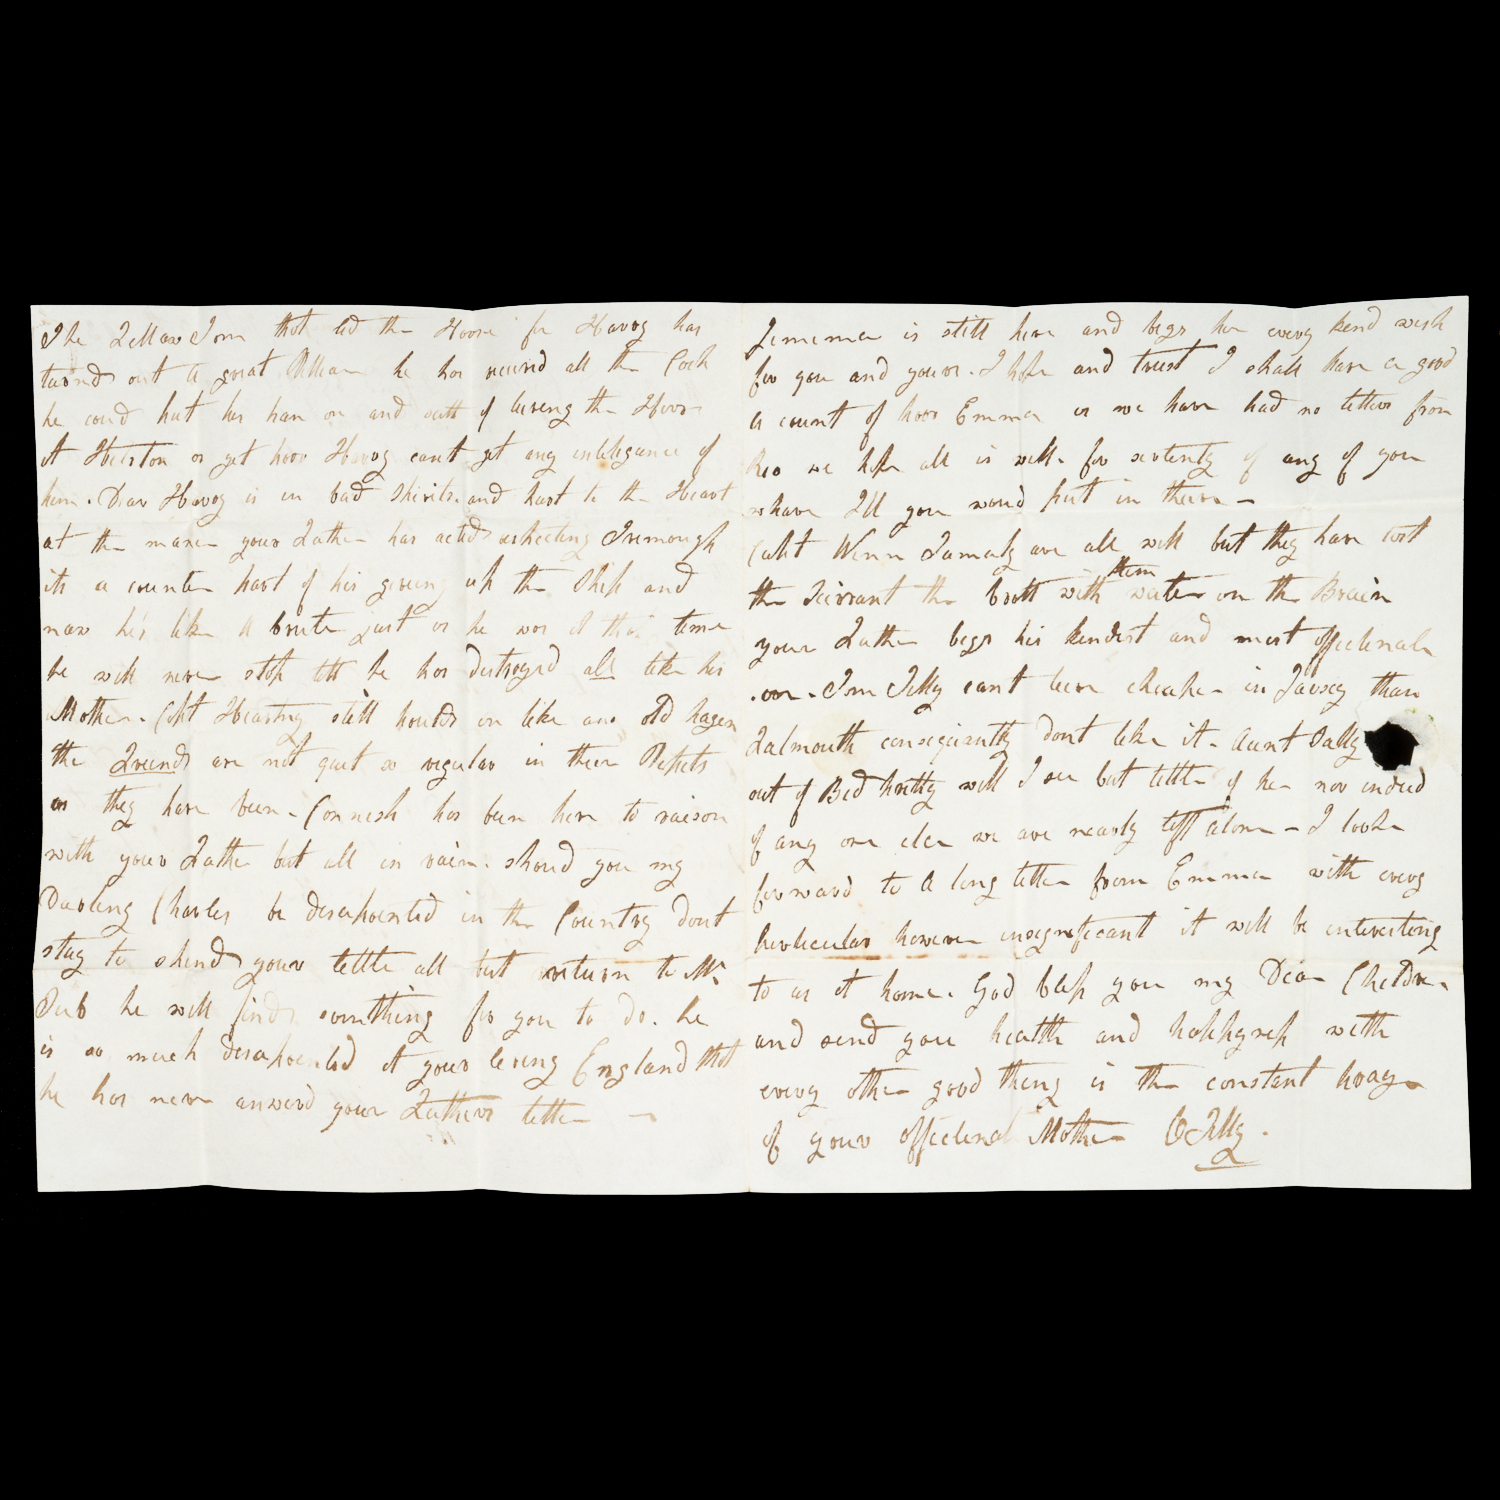 The Fellow Tom that led the Horse for Harry has
turnd out a great Villian he has receivd all the Cash
he coud put his han on and  of  the
At Helston as yet poor Harry cant get any inteligance of
him. Dear Harry is in bad Spirits. and hurt to the Heart
at the maner your Father has acted respecting Tremough
its a counter part of his giveing up the Ship and
now he's like a brute just as he was at that time
he will never stop till he has destroyed all like his
Mother. Capt Hearing still houlds on like an old
the Friends are not quit so regular in their Vissets
as they have been. Cornish has been here to raison
with your Father but all in vain. shoud you my
Darling Charles be disapointed in the Country dont
stay to spend your little all but return to Mr
he will find something for you to do. he
is so much disapointed at your leving England that
he has never answerd your Fathers letter
Jemima is still here and begs her every kind wish
for you and yours. I hope and trust I shall have a good
a count of poor Emma as we have had no letters from
her we hope all is well. for  of any of you
whare Ill you woud put in theirs
Capt Winn Famaly are all well but they have lost
the Sarvant the brott with them water on the Brain
your Father begs his kindest and most affectinate
love. Tom Tilly cant leve cheaper in Jarsey than
Falmouth consiquantly dont like it. Aunt Sally
out of Bed pritty well I see but little of her nor indeed
of any one else we are nearly left alone - I look
forward to a long letter from Emma with every
perticular however insignificant it will be interesting
to us at home. God bless you my Dear Childre
and send you health and happyness with
every other good thing is the constant pray
of your affectinat Mother Tilly.